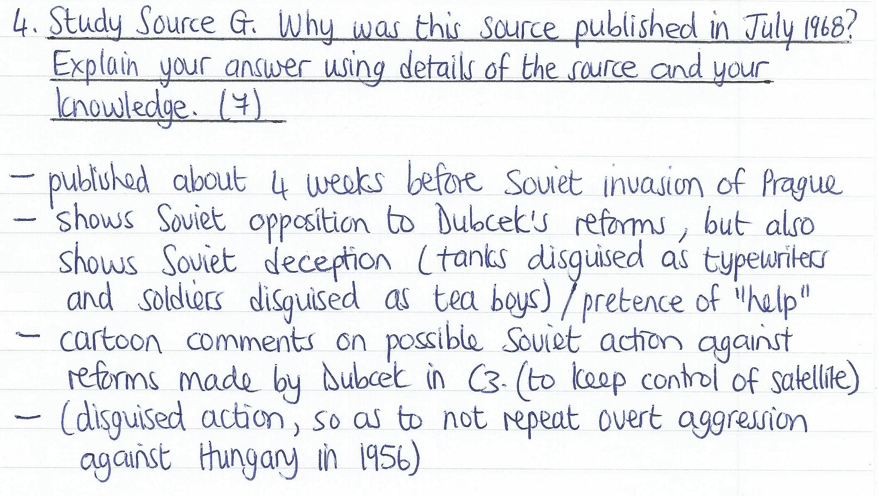 4. Study Source G. Why was this source published in July 1968?
Explain your answer using details of the source and your
knowledge. (7)
- published about 4 weeks before Soviet invasion of Prague
- shows Soviet opposition to Dubcek's reforms, but also
shows Soviet deception (tanks disguised as typewriters
and soldiers disguised as tea boys) / pretence of "help"
- cartoon comments on possible Soviet action against
reforms made by Dubcek in C3. (to keep control of satellite)
- (disguised action, so as to not repeat overt aggression
against Hungary in 1956)